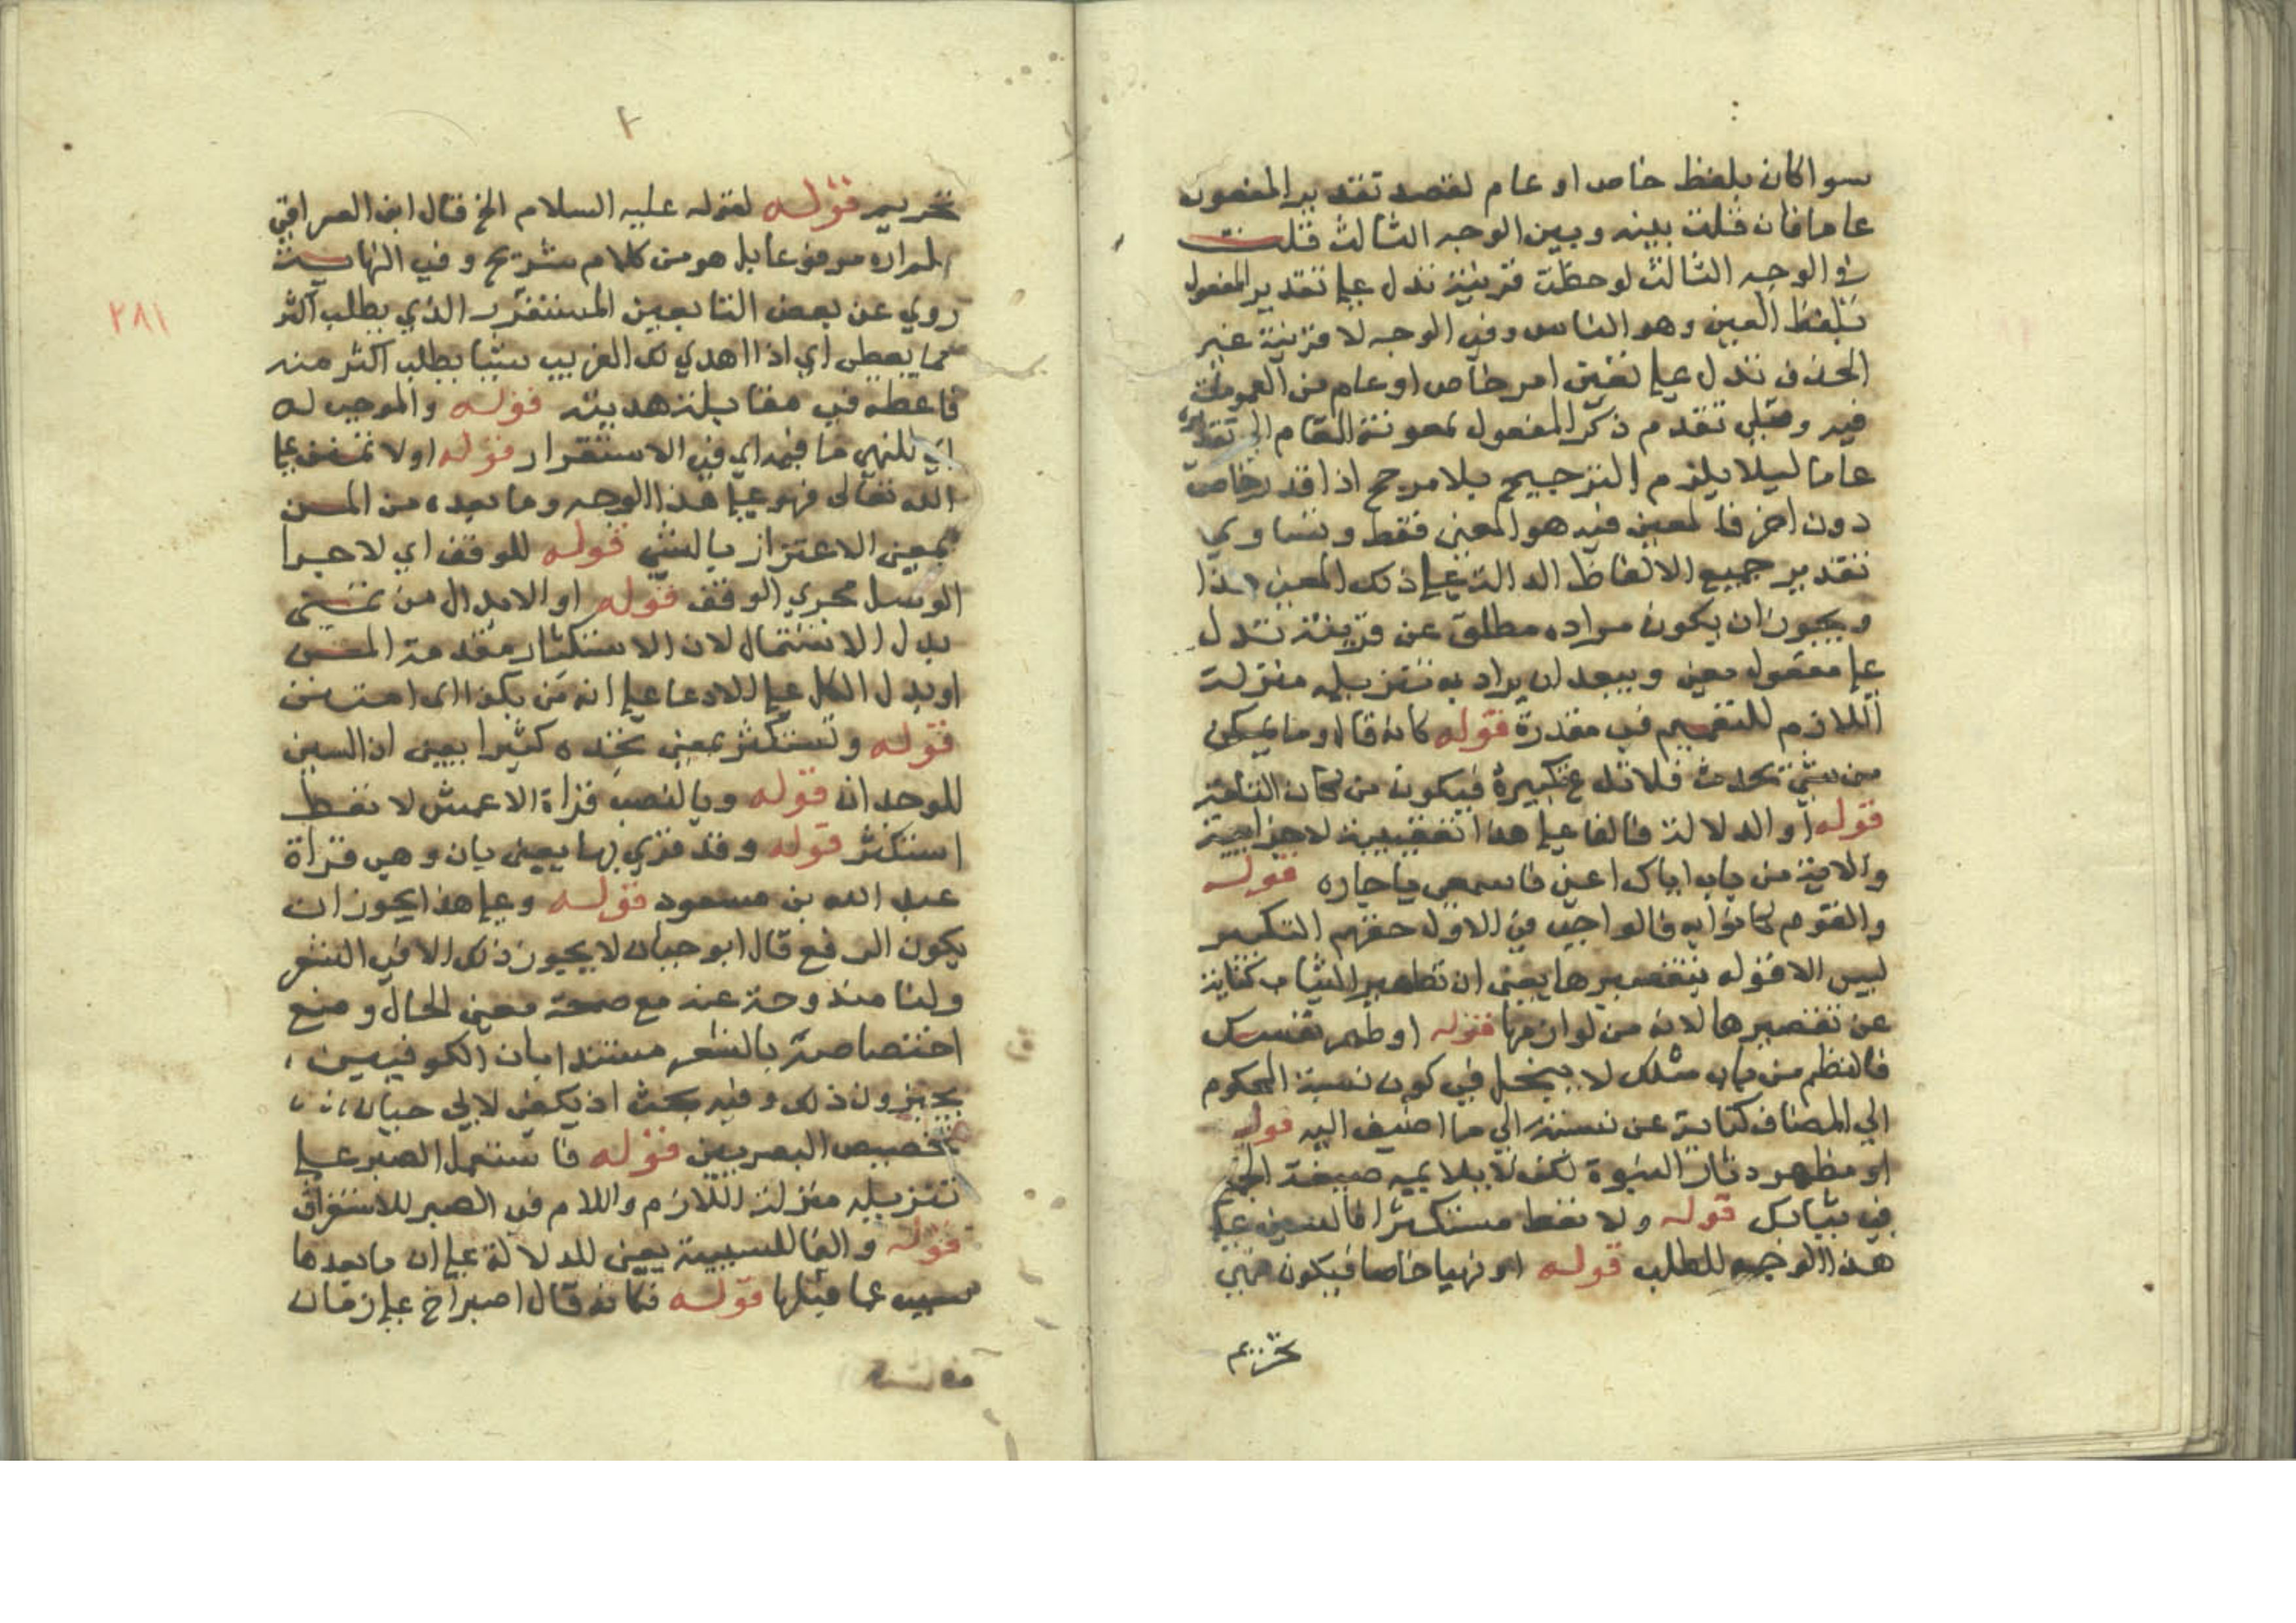 سوا كان بلفظ خاص او عام لقصد تقدير المفعول
عاما فان قلت بينه وبين الوجه الثالث قلت
في الوجه الثالث لوحظت قرينة تدل على تقدير المفعول
بلفظ العين وهو الناس وفي الوجه لا قرينة غير
الحذف تدل على تعين امر خاص او عام من العمومات
فيه وقبلي تقدم ذكر المفعول بمعونة المقام الى
عاما ليلا يلزم الترجيح بلا مرجح اذا قدر خاص
دون اخر فالمعين فيه هو المعنى فقط وتساوي
تقدير جميع الالفاظ الدالة على ذلك المعنى هذا
ويجوز ان يكون مراده مطلق عن قرينة تدل
على مفعول معين ويبعد ان يراد به تنزيله منزلة
اللازم للتعميم في مقدرة قوله كانه قال وما يكن
من شي يحدث فلا تدع تكبيره فيكون من كان التامة
قوله او الدلالة فالفا على هذا تعقيبية لا جزاية
والاية من باب اياك اعني فاسمعي يا جاره قوله
والقوم كانوا به فالواجب في الاول حقهم التكبير
ليس الا قوله بتقصيرها يعني ان تطهير الثياب كناية
عن تقصيرها لانه من لوازمها قوله او طهر نفسك
فالنظم من باب مثلك لا يبخل في كون نسبة المحكوم
الي المضاف كناية عن نسبته الي ما اضيف اليه قوله
او مظهر دثار النبوة لكن لا يلايمه صيغة الجمع
في ثيابك قوله ولا تعط مستكثرا فالسين على
هذا الوجه للطلب قوله او نهيا خاصا فيكون نهي
تحريم
تحريم قوله لقوله عليه السلام الخ قال ابن العراقي
لم اره مرفوعا بل هو من كلام شريح وفي النهاية
روي عن بعض التابعين المستغزر الذي يطلب اكثر
مما يعطى اي اذا اهدي لك الغريب شيا يطلب اكثر منه
فاعطه في مقابلة هديته قوله والموجب له
اي للنهي ما فيه اي في الاستغزار قوله او لا تمنن على
الله تعالى فهو على هذا الوجه وما بعده من المن
بمعنى الاعتزاز بالشي قوله للوقف اي لاجرا
الوصل مجري الوقف قوله او الابدال من تمنن
بدل الاشتمال لان الاستكثار مقدمة المن
او بدل الكل على الادعا على انه
قوله وتستكثر بمعنى تجده كثيرا يعني ان السين
للوجدان قوله وبالنصب قراة الاعمش لا تعط
استكثر قوله وقد قري بها يعني بان وهي قراة
عبد الله بن مسعود قوله وعلى هذا يجوز ان
يكون الرفع قال ابو حيان لا يجوز ذلك الا في الشعر
ولنا مندوحة عنه مع صحة معنى الحال ومنع
اختصاصه بالشعر مستندا بان الكوفيين
يجيزون ذلك وفيه بحث اذ يكفي لابي حيان
تخصيص البصريين قوله فاستعمل الصبر على
تنزيله منزلة اللازم واللام في الصبر للاستغراق
قوله والفا للسببية يعني للدلالة على ان ما بعدها
سبب عما قبلها قوله فكانه قال اصبر الخ على زمان
٢٨١